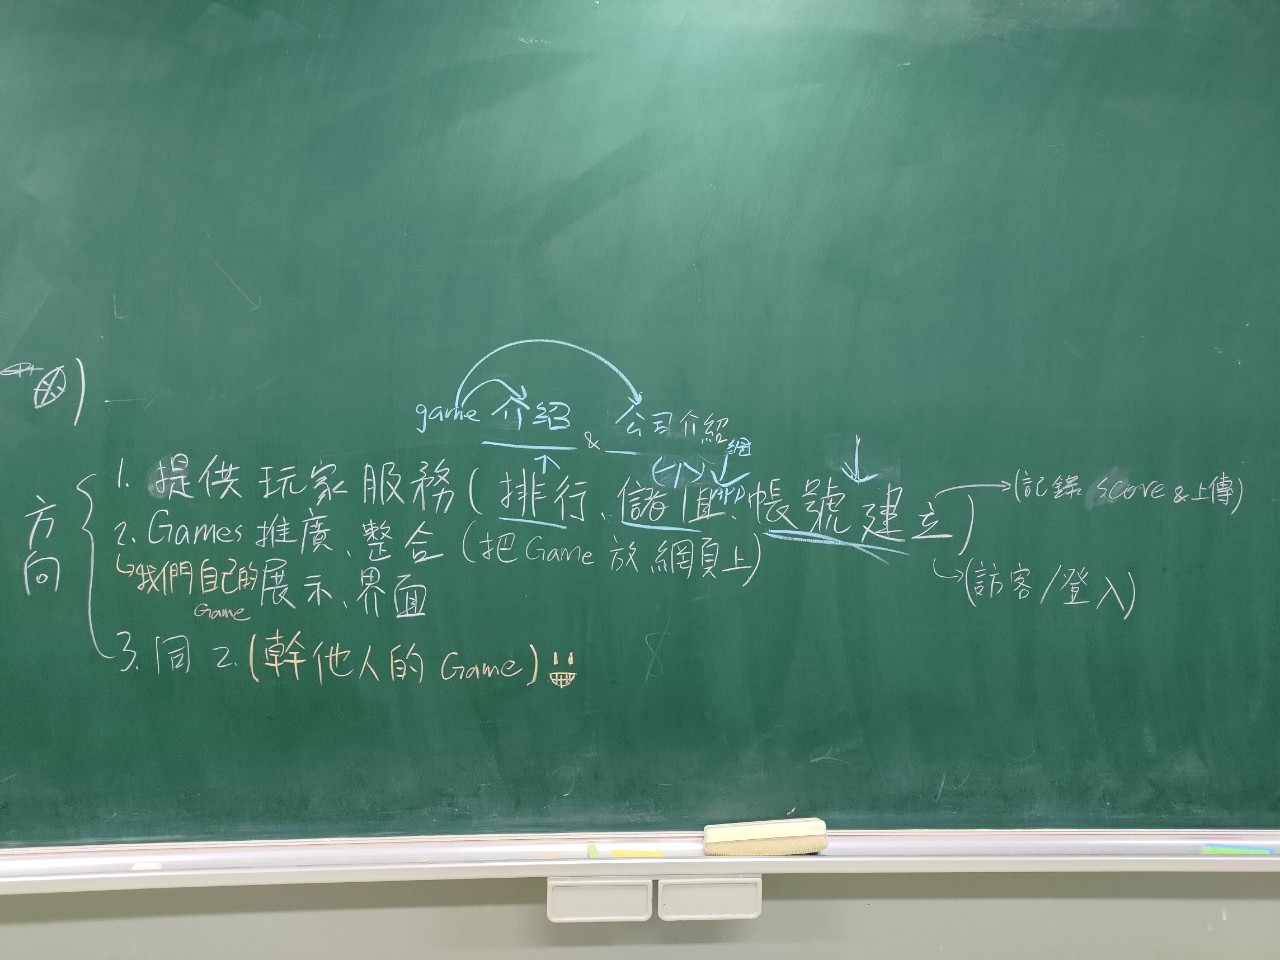 game 介紹 & 公司介紹
網
方向
1. 提供玩家服務(排行、儲值、帳號建立)
(記錄 score & 上傳)
(訪客/登入)
2. Games 推廣、整合(把Game放網頁上)
我們自己的 Game
展示、界面
3. 同 2. (幹他人的 Game)